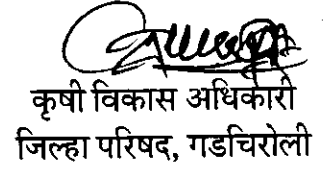 कृषी विकास अधिकारी
जिल्हा परिषद, गडचिरोली